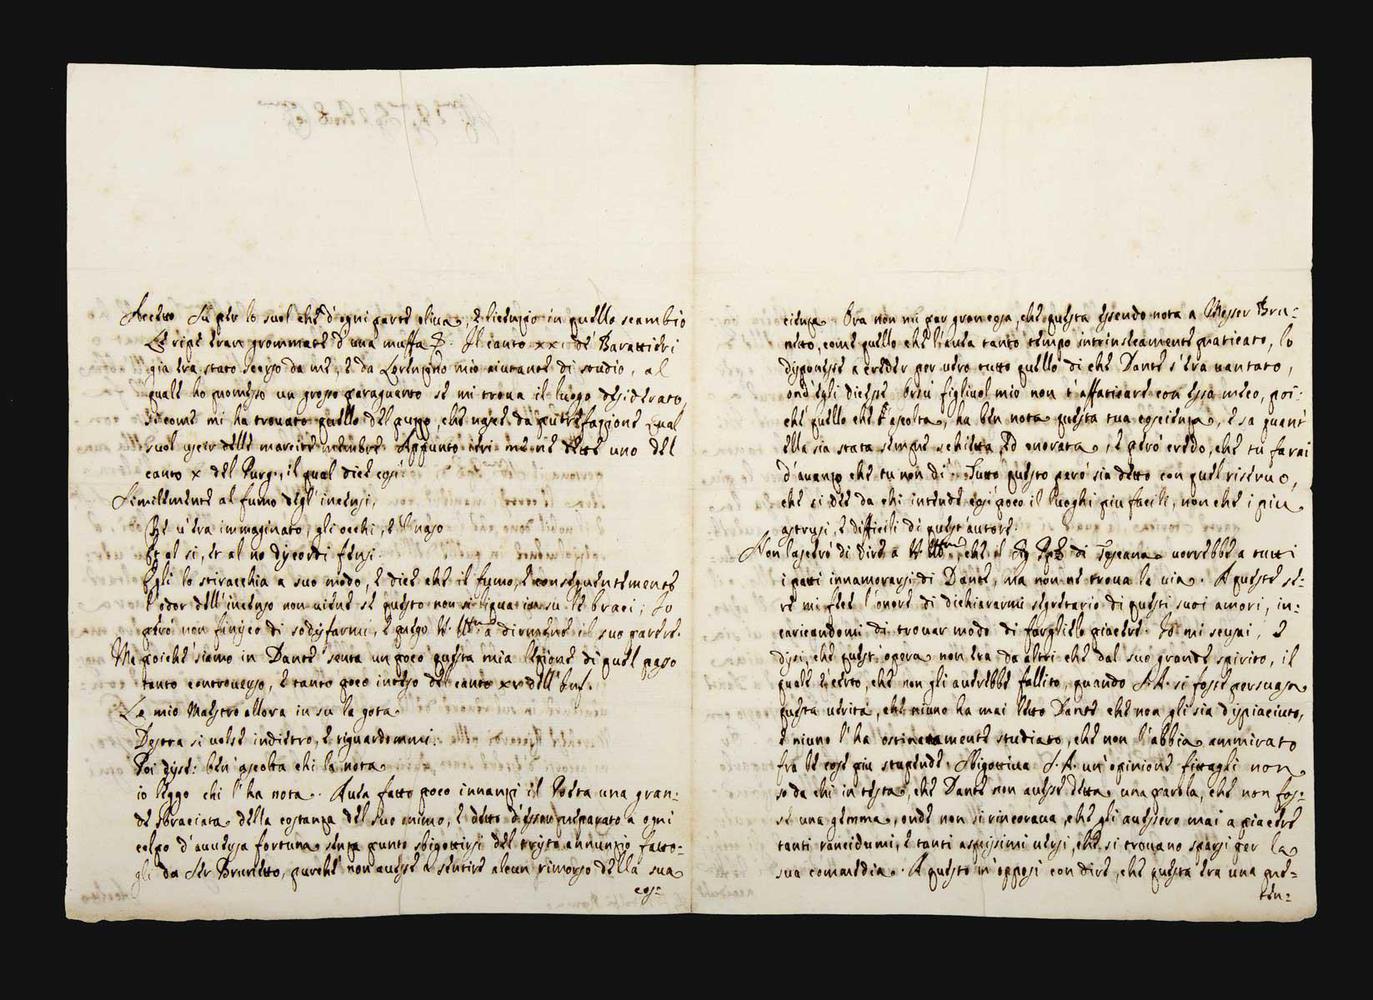 Secreto Su per lo suol che d'ogni parte oliva, e licenzio in quello scambio
Le ripe eran grommate d'una muffa &. Il canto xxi de' Barattieri
gia era stato scorso da me, e da Lorenzino mio aiutante di studio, al
quale ho promesso un grosso paraguanto se mi trova il luogo desiderato,
sicome mi ha trovato quello del puzzo, che n'esce da putrefazzione qual
suol uscir delle marcite membre. Appunto ieri me ne lesse uno del
canto x del Purg., il qual dice così
Similmente al fumo degl' incensi,
Che v'era immaginato, gli occhi, e 'l naso
Et al si, et al no discordi fensi.
Egli lo stiracchia a suo modo, e dice che il fumo, e conseguentemente
l'odor dell'incenso non viene se questo non si liqua in su le braci; Io
però non finisco di sodisfarmi, e prego V. a dirmene il suo parere.
Ma poiche siamo in Dante senta un poco questa mia lezione di quel passo
tanto controverso, e tanto poco inteso del canto xv dell' Inf.
Lo mio Maestro allora in su la gota
Destra si volse indietro, e riguardommi:
Poi disse: ben' ascolta chi la nota
io leggo chi l'ha nota. Avea fatto poco innanzi il Poeta una gran=
de sbraciata della costanza del suo animo, e detto d'esser preparato a ogni
colpo d'avversa fortuna senza punto sbigottirsi del tristo annunzio fatto=
gli da Ser Brunetto, purche non avesse a sentire alcun rimorso della sua
cos=
cienza. Ora non mi par gran cosa, che questa essendo nota a Messer Bru=
netto, come quello che l'avea tanto tempo intrinsecamente praticato, lo
disponesse a creder per vero tutto quello di che Dante s'era vantato,
ond'egli dicesse Orsù figliuol mio non t'affaticare con essa meco, poi=
che quello che t'ascolta, ha ben nota questa tua coscienza, e sa quant'
ella sia stata sempre schietta, ed onorata, e però credo, che tu farai
d'avanzo che tu non di'. Tutto questo però sia detto con quel riserv o,
che si dee da chi intende così poco i luoghi piu facili, non che i piu
astrusi, e difficili di quest' autore.
Non lascerò di dire a V. che il di Toscana vorrebbe a tutti
i patti innamorarsi di Dante, ma non ne trova la via. A queste se=
re mi fece l'onore di dichiararmi segretario di questi suoi amori, in=
caricandomi di trovar modo di farglielo piacere. Io mi scusai, e
dissi, che quest' opera non era da altri che dal suo grande spirito, il
quale è certo, che non gli averebbe fallito, quando S.A. si fosse persuasa
questa verità, che niuno ha mai letto Dante che non gli sia dispiaciuto,
e niuno l'ha ostinatamente studiato, che non l'abbia ammirato
fra le cose piu stupende. Sbigottiva S.A. un' opinione fittagli non
so da chi in testa, che Dante non avesse detta una parola, che non fos=
se una gemma, onde non si rincorava, che gli avessero mai a piacere
tanti rancidumi, e tanti asprissimi versi, che si trovano sparsi per la
sua commedia. A questo m'opposi con dire, che questa era una pre=
ten=